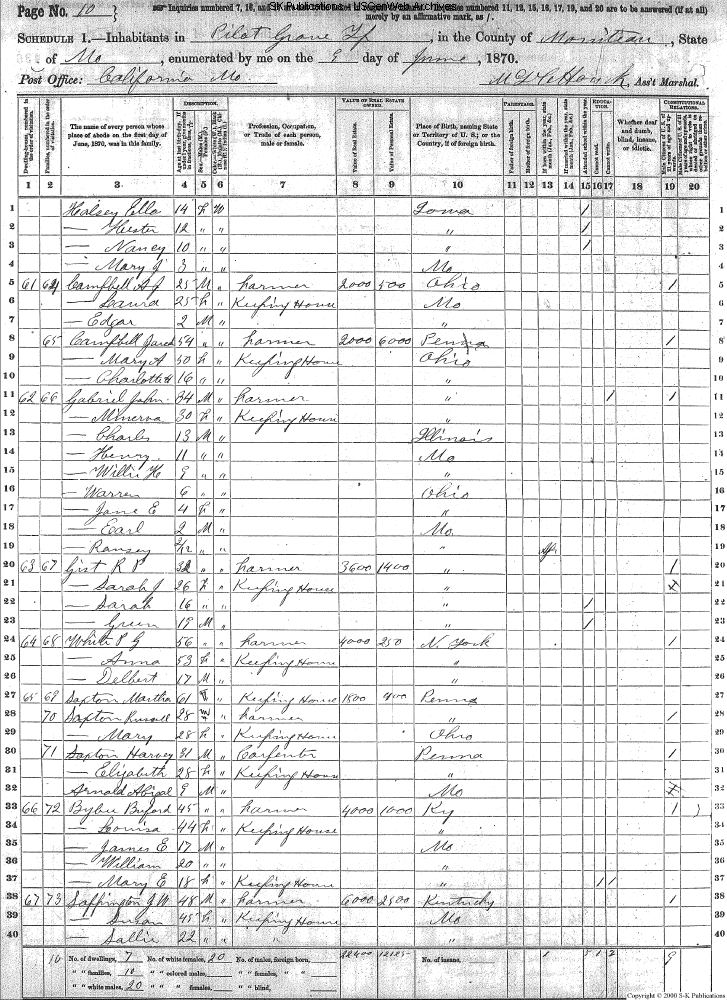 Page No. 10
Inquiries numbered 7, 16, and
S-K Publications - USGenWeb Archives
numbered 11, 12, 15, 16, 17, 19, and 20 are to be answered (if at all)
merely by an affirmative mark, as /.
SCHEDULE 1.—Inhabitants in Pilot Grove Tp, in the County of Moniteau, State
of Mo, enumerated by me on the 9 day of June, 1870.
Post Office: California Mo. Ass't Marshal.
Dwelling-houses, numbered in the order of visitation.
Families, numbered in the order of visitation.
The name of every person whose place of abode on the first day of June, 1870, was in this family.
DESCRIPTION.
Profession, Occupation, or Trade of each person, male or female.
VALUE OF REAL ESTATE OWNED.
Value of Real Estate.
Value of Personal Estate.
Place of Birth, naming State or Territory of U. S.; or the Country, if of foreign birth.
PARENTAGE.
Father of foreign birth.
Mother of foreign birth.
Attended school within the year.
EDUCATION.
Cannot read.
Cannot write.
Whether deaf and dumb, blind, insane, or idiotic.
CONSTITUTIONAL RELATIONS.
1 2 3 4 5 6 7 8 9 10 11 12 13 14 15 16 17 18 19 20
1 Halsey Ella 14 F W Iowa / 1
2 — Hester 12 " " " / 2
3 — Nancy 10 " " " / 3
4 — Mary J 3 " " Mo 4
5 61 64 Campbell A J 25 M " Farmer 2000 500 Ohio / 5
6 — Laura 25 F " Keeping House Mo 6
7 — Edgar 2 M " " 7
8 65 Campbell Jared 54 " " Farmer 2000 6000 Penna / 8
9 — Mary A 50 F " Keeping House Ohio 9
10 — Charlotte H 16 " " " 10
11 62 66 Gabriel John 34 M " Farmer " / / 11
12 — Minerva 30 F " Keeping House " 12
13 — Charles 13 M " Illinois 13
14 — Henry 11 " " Mo 14
15 — Willie H 9 " " " 15
16 — Warren 6 " " Ohio 16
17 — Jane E 4 F " " 17
18 — Earl 2 M " Mo. 18
19 — Ransey 2/12 " " " Apr 19
20 63 67 Gist R P 32 " " Farmer 3600 1400 " / 20
21 — Sarah J 26 F " Keeping House " 21
22 — Sarah 16 " " " / 22
23 — Green 19 M " " / 23
24 64 68 White P G 56 " " Farmer 4000 250 N. York / 24
25 — Anna 53 F " Keeping House " 25
26 — Delbert 17 M " " 26
27 65 69 Sapton Martha 61 F " Keeping House 1800 400 Penna 27
28 70 Sapton Russell 28 M " Farmer " / 28
29 — Mary 28 F " Keeping House Ohio 29
30 71 Sapton Harvey 31 M " Carpenter Penna / 30
31 — Elizabeth 28 F " Keeping House " 31
32 Arnold Abigal 9 M " Mo 32
33 66 72 Bybee Buford 45 " " Farmer 4000 1000 Ky / 33
34 — Louisa 44 F " Keeping House " 34
35 — James E 17 M " Mo 35
36 — William 20 " " " 36
37 — Mary E 18 F " Keeping House " / / 37
38 67 73 Sappington J W 48 M " Farmer 6000 2500 Kentucky / 38
39 — Susan 45 F " Keeping House Mo 39
40 — Sallie 22 " " " " 40
No. of dwellings, 7 No. of white females, 20 No. of males, foreign born, 22400 No. of insane, 1 5 1 2 9
" " families, 10 " " colored males, " " females, "
" " white males, 20 " " females, " " blind,
Copyright © 2000 S-K Publications